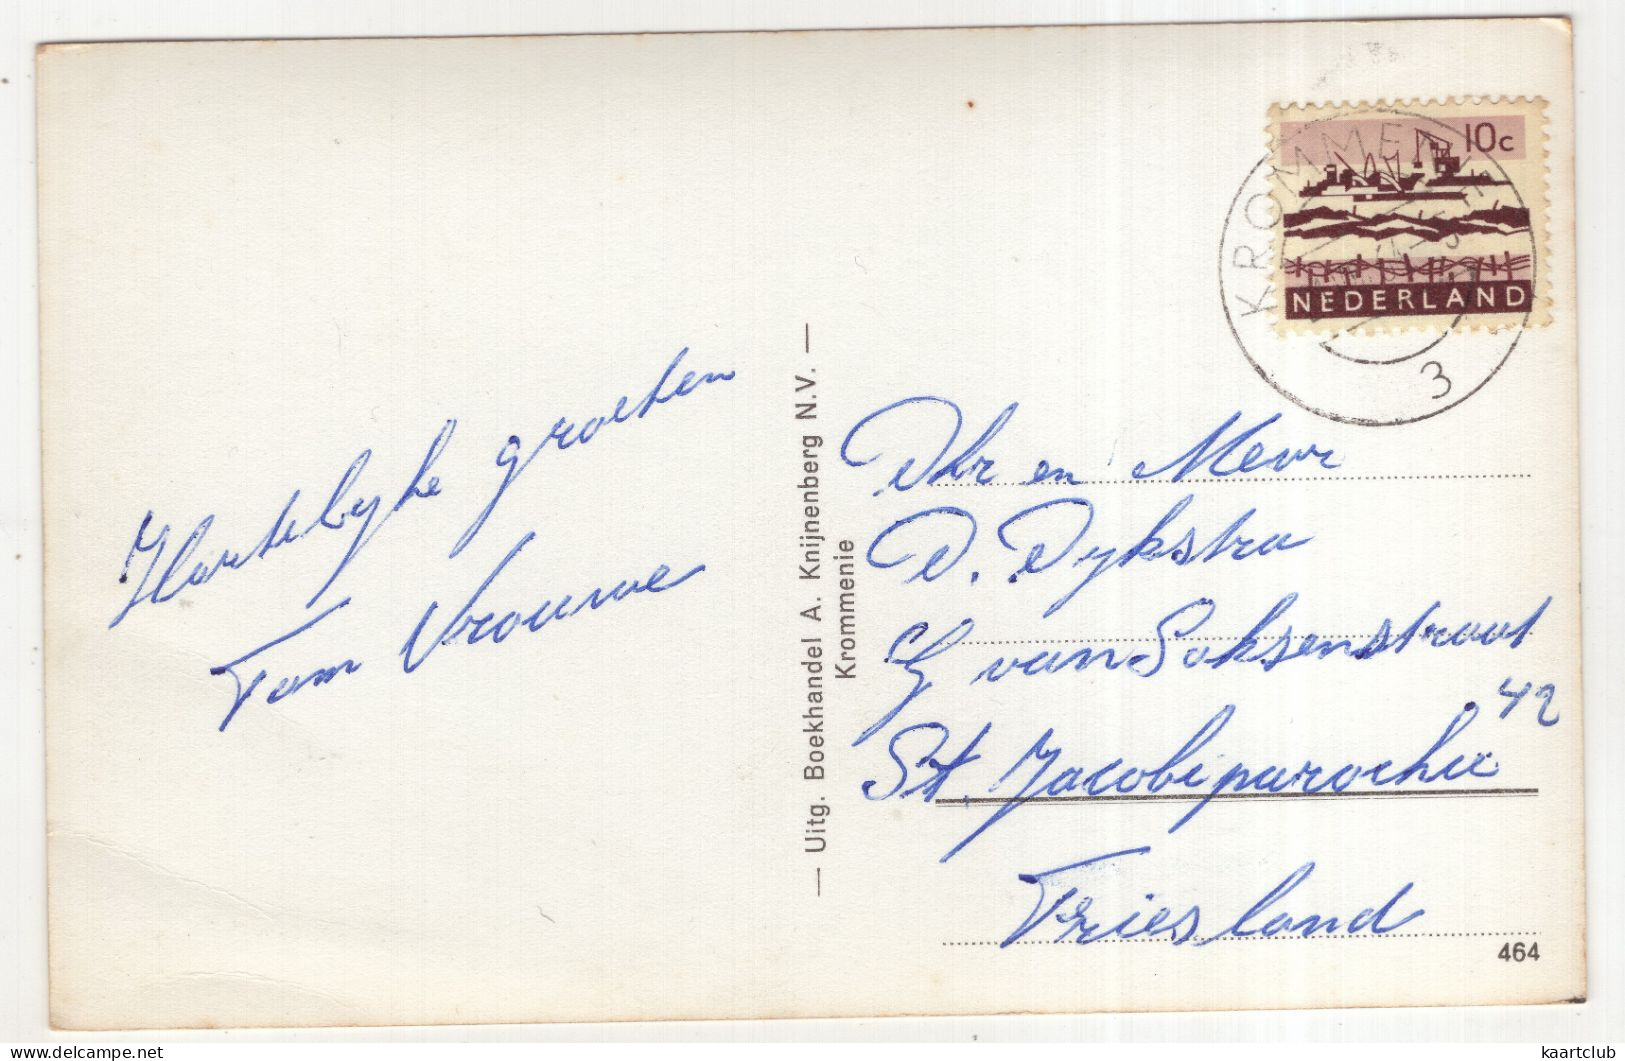 Hartelyke groeten
Fam Vrouwe
— Uitg. Boekhandel A. Knijnenberg N.V. —
Krommenie
KROMMENIE
3
10c
NEDERLAND
Dhr en Mevr
D. Dykstra
van Saksenstraat
42
St. Jacobiparochie
Friesland
464
www.delcampe.net
kaartclub